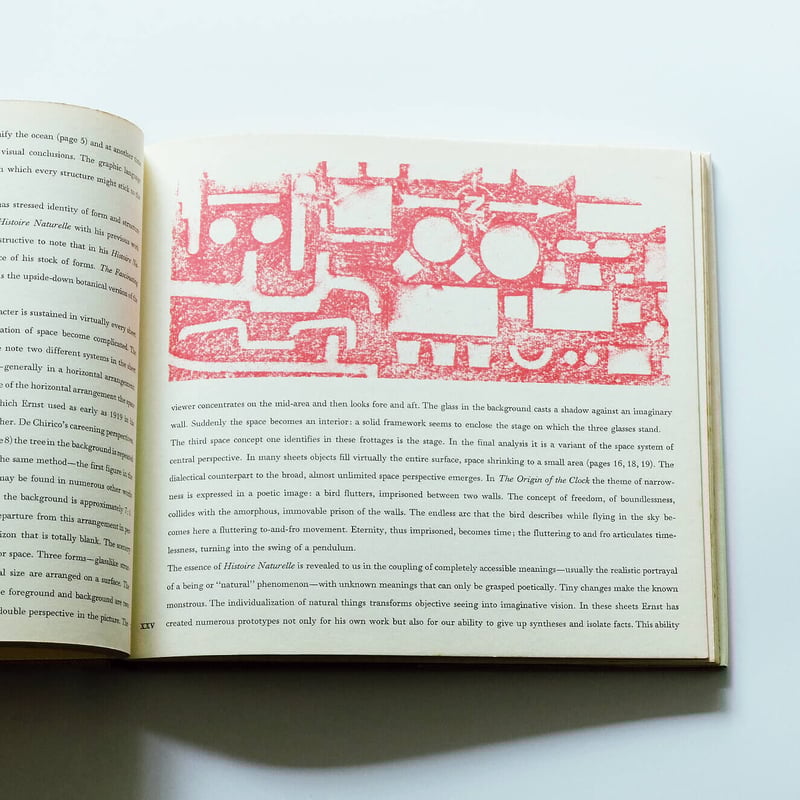 nify the ocean (page 5) and at another time
visual conclusions. The graphic language
n which every structure might stick to the
has stressed identity of form and structure
Histoire Naturelle with his previous work
structive to note that in his Histoire Na-
ce of his stock of forms. The Fascinating
s the upside-down botanical version of the
acter is sustained in virtually every sheet
ation of space become complicated. The
note two different systems in the sheet
—generally in a horizontal arrangement
e of the horizontal arrangement the space
which Ernst used as early as 1919 in his
her. De Chirico's careening perspective,
e 8) the tree in the background is repeated
the same method—the first figure in the
may be found in numerous other works
the background is approximately 7:1.
eparture from this arrangement in per-
izon that is totally blank. The scenery
or space. Three forms—glasslike struc-
al size are arranged on a surface. The
e foreground and background are two
double perspective in the picture. The
N
viewer concentrates on the mid-area and then looks fore and aft. The glass in the background casts a shadow against an imaginary
wall. Suddenly the space becomes an interior: a solid framework seems to enclose the stage on which the three glasses stand.
The third space concept one identifies in these frottages is the stage. In the final analysis it is a variant of the space system of
central perspective. In many sheets objects fill virtually the entire surface, space shrinking to a small area (pages 16, 18, 19). The
dialectical counterpart to the broad, almost unlimited space perspective emerges. In The Origin of the Clock the theme of narrow-
ness is expressed in a poetic image: a bird flutters, imprisoned between two walls. The concept of freedom, of boundlessness,
collides with the amorphous, immovable prison of the walls. The endless arc that the bird describes while flying in the sky be-
comes here a fluttering to-and-fro movement. Eternity, thus imprisoned, becomes time; the fluttering to and fro articulates time-
lessness, turning into the swing of a pendulum.
The essence of Histoire Naturelle is revealed to us in the coupling of completely accessible meanings—usually the realistic portrayal
of a being or “natural” phenomenon—with unknown meanings that can only be grasped poetically. Tiny changes make the known
monstrous. The individualization of natural things transforms objective seeing into imaginative vision. In these sheets Ernst has
created numerous prototypes not only for his own work but also for our ability to give up syntheses and isolate facts. This ability
XXV